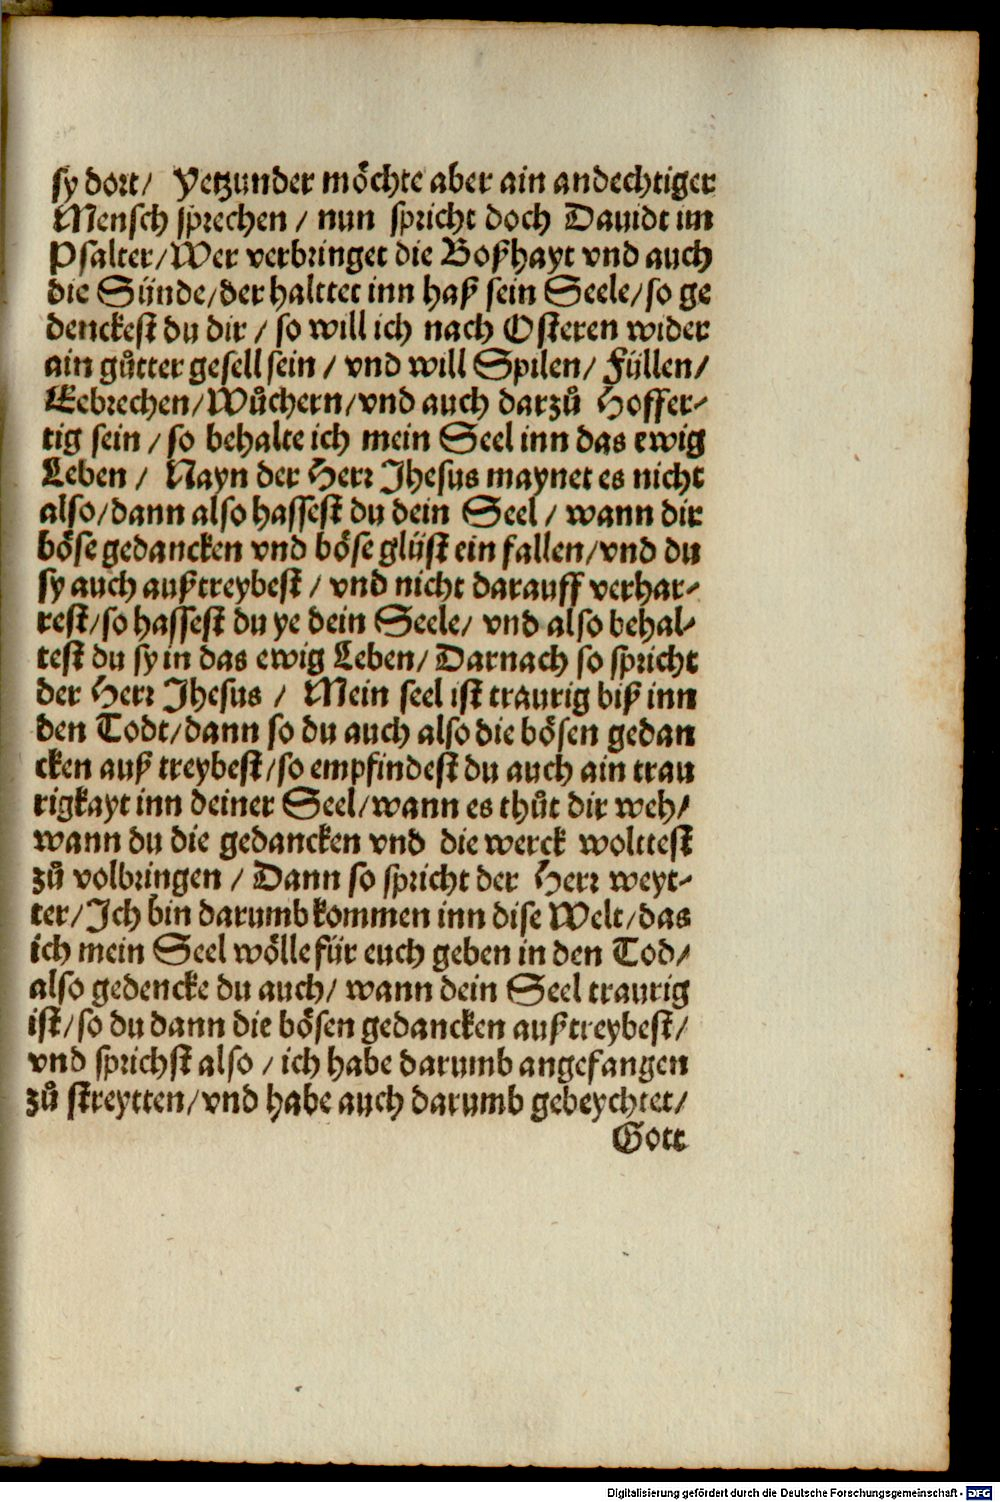 sy dort/ Yetzunder möchte aber ain andechtiger
Mensch sprechen / nun spricht doch Dauidt im
Psalter/Wer verbringet die Boßhayt vnd auch
die Sünde/der halttet inn haß sein Seele/so ge
denckest du dir / so will ich nach Osteren wider
ain gůtter gesell sein / vnd will Spilen/ Füllen/
Eebrechen/Wůchern/vnd auch darzů Hoffer-
tig sein /so behalte ich mein Seel inn das ewig
Leben / Nayn der Herr Jhesus maynet es nicht
also/dann also hassest du dein Seel/ wann dir
böse gedancken vnd böse glüst ein fallen/vnd du
sy auch außtreybest / vnd nicht darauff verhar-
rest/so hassest du ye dein Seele/ vnd also behal-
test du sy in das ewig Leben/ Darnach so spricht
der Herr Jhesus / Mein seel ist traurig biß inn
den Todt/dann so du auch also die bösen gedan
cken auß treybest/so empfindest du auch ain trau
rigkayt inn deiner Seel/wann es thůt dir weh/
wann du die gedancken vnd die werck wolttest
zů volbringen / Dann so spricht der Herr weyt-
ter/Ich bin darumb kommen inn dise Welt/das
ich mein Seel wölle für euch geben in den Tod/
also gedencke du auch/ wann dein Seel traurig
ist/so du dann die bösen gedancken außtreybest/
vnd sprichst also / ich habe darumb angefangen
zů streytten/vnd habe auch darumb gebeychtet/
Gott
Digitalisierung gefördert durch die Deutsche Forschungsgemeinschaft - DFG